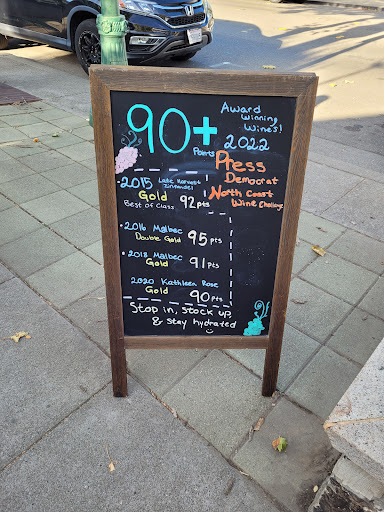 90+
Points
Award
Winning
Wines!
2022
Press
Democrat
North Coast
Wine Challenge
•2015 Late Harvest
Zinfandel
Gold
Best of Class 92pts
•2016 Malbec
Double Gold 95pts
•2018 Malbec
Gold 91pts
2020 Kathleen Rose
Gold 90pts
Stop in, stock up,
& stay hydrated